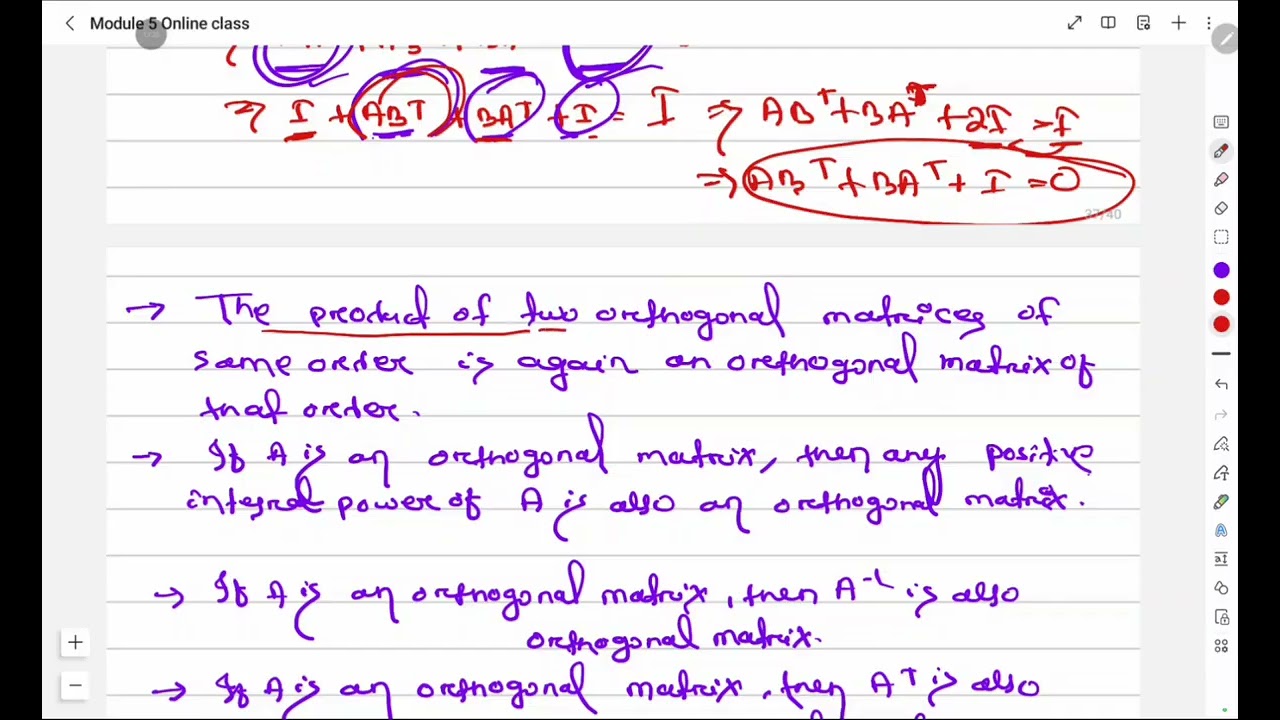 Module 5 Online class
⇒ I + ABᵀ + BAᵀ + I = I ⇒ ABᵀ + BAᵀ + 2I = I
⇒ ABᵀ + BAᵀ + I = 0
37/40
→ The product of two orthogonal matrices of
same order is again an orthogonal matrix of
that order.
→ If A is an orthogonal matrix, then any positive
integral power of A is also an orthogonal matrix.
→ If A is an orthogonal matrix, then A⁻¹ is also
orthogonal matrix.
→ If A is an orthogonal matrix, then Aᵀ is also